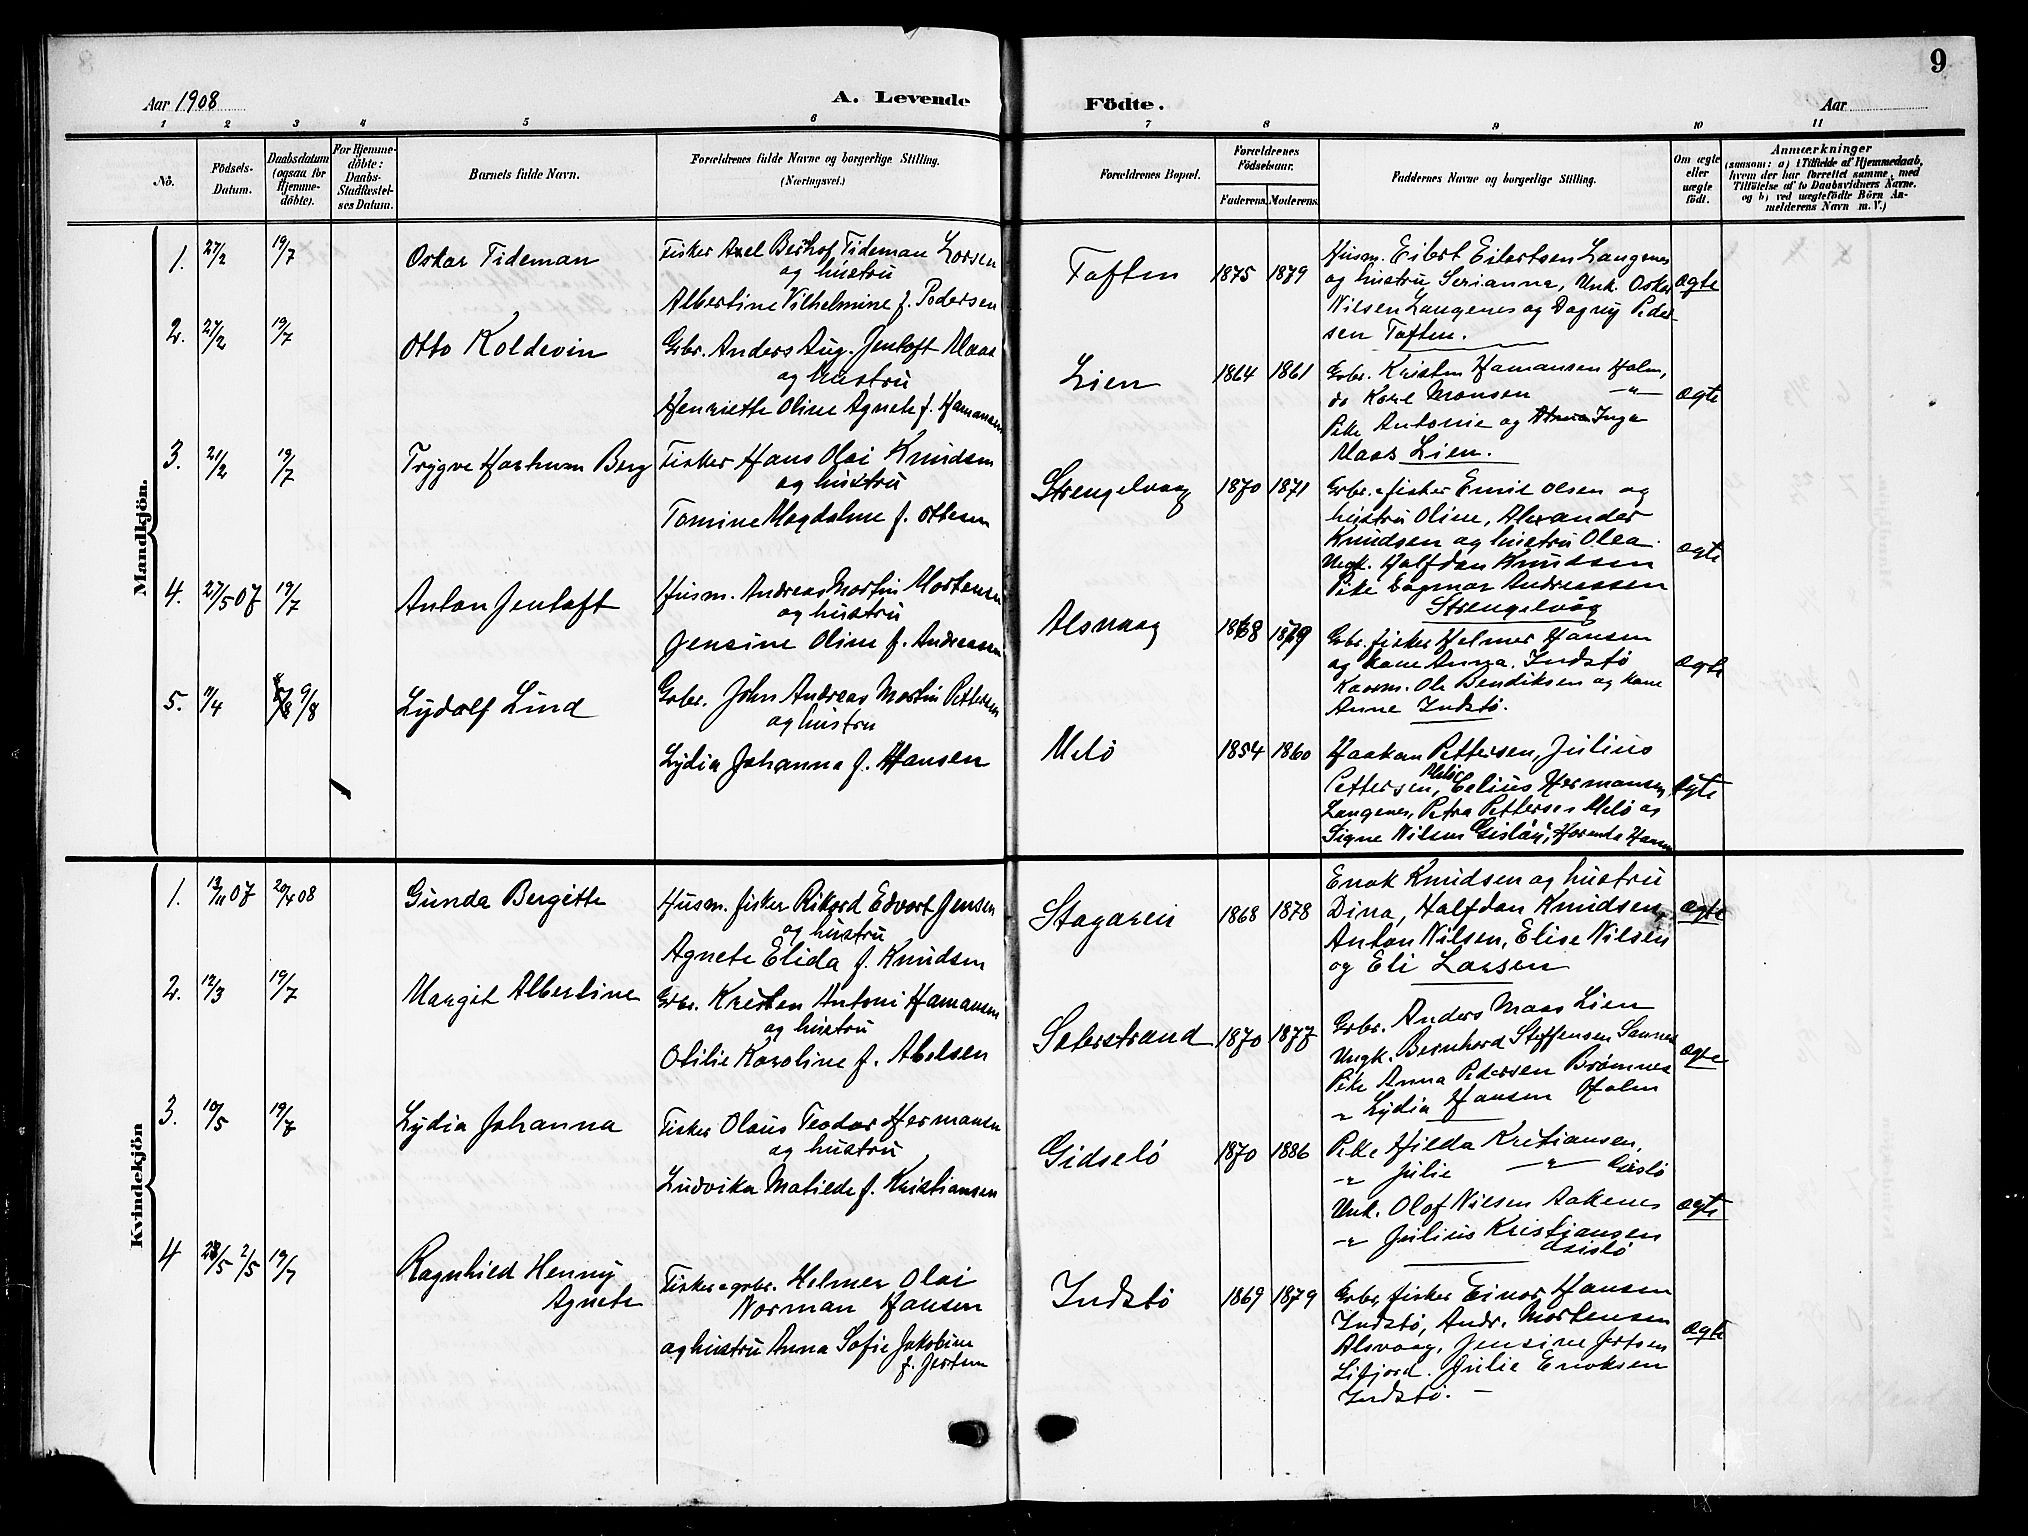 9
Aar 1908
A. Levende Födte.
Aar
1 2 3 4 5 6 7 8 9 10 11
No.
Födsels-
Datum.
Daabsdatum
(ogsaa for
Hjemme-
döbte).
For Hjemme-
döbte:
Daabs-
Stadfæstel-
ses Datum.
Barnets fulde Navn.
Forældrenes fulde Navne og borgerlige Stilling.
(Næringsvei.)
Forældrenes Bopæl.
Forældrenes
Födselsaar.
Faderens. Moderens.
Faddernes Navne og borgerlige Stilling.
Om ægte
eller
uægte
födt.
Anmærkninger
(saasom: a) i Tilfælde af Hjemmedaab,
hvem der har forrettet samme, med
Tilföielse af to Daabsvidners Navne.
og b) ved uægtefödte Börn An-
melderens Navn m. V.)
Mandkjön.
1. 27/2 19/7 Oskar Tideman
Fisker Axel Tideman Larsen
og hustru
Albertine Vilhelmine f. Pedersen
Toften 1875 1879
Husm. Eilert Eilertsen Langenes
og hustru Serianna, Unk. Oskar
Nilsen Langenes og Dagny Peder-
sen Toften.
ægte
2. 27/2 19/7 Otto Koldevin
Gbr. Anders Aug. Jentoft Maas
og hustru
Henriette Oline Agnete f. Hamansen
Lien 1864 1861
Grbr. Kristen Hamansen Holm,
do Karl Monsen "
Pike Antonie og Inga
Maas Lien.
ægte
3. 21/2 19/7 Trygve Berg
Fisker Hans Olai Knudsen
og hustru
Tomine Magdalene f. Ottesen
Strengelvaag 1870 1871
Grbr. fisker Emil Olsen og
hustru Oline, Alexander
Knudsen og hustru Olea.
Ungk. Halfdan Knudsen
Pike Dagmar Andreassen
Strengelvåg
ægte
4. 27/5 07 19/7 Anton Jentoft
Husm. Andreas Martin Mortensen
og hustru
Jensine Oline f. Andreasen
Alsvaag 1868 1879
Grbr. fisker Helmer Hansen
og kone Anna. Indstö
Kaarm. Ole Bendiksen og kone
Anne Indstö.
ægte
5. 11/4 9/8 Lydolf Lind
Grbr. John Andreas Martin Pettersen
og hustru
Lydia Johanna f. Hansen
Melö 1854 1860
Haakon Pettersen, Julius
Pettersen, Melö Celius Hermansen
Langenes, Petra Pettersen Melö og
Signe Nilsen Gislöy, Hansen
ægte
Kvindekjön
1. 13/11 07 20/4 08 Gunda Bergitte
Husm. fisker Rikard Edvart Jensen
og hustru
Agnete Elida f. Knudsen
Stagarei 1868 1878
Enok Knudsen og hustru
Dina, Halfdan Knudsen,
Anton Nilsen, Elise Nilsen
og Eli Larsen
ægte
2. 12/3 19/7 Margit Albertine
Grbr. Kristen Antoni Hamansen
og hustru
Otilie Karoline f. Abelsen
Säterstrand 1870 1877
Grbr. Anders Maas Lien
Ungk. Bernhard Steffensen Sannes
Pike Anna Pedersen Brömnes
" Lydia Hansen Holm
ægte
3. 10/5 19/7 Lydia Johanna
Fisker Olaus Teodor Hermansen
og hustru
Ludvika Matilde f. Kristiansen
Gidselö 1870 1886
Pike Hilda Kristiansen,
" Julie " Gislö
Unk. Olof Nilsen Aakenes
" Julius Kristjansen
Gislö
ægte
4 23/5 2/5 19/7 Ragnhild Henny
Agnete
Fisker & grbr. Helmer Olai
Norman Hansen
og hustru Anna Sofie Jakobine
f. Jertsen
Indstö 1869 1879
Grbr. fisker Einor Hansen
Indstö, Andr. Mortensen
Alsvaag, Jensine Jertsen
Lifjord. Julie Enoksen
Indstö. –
ægte